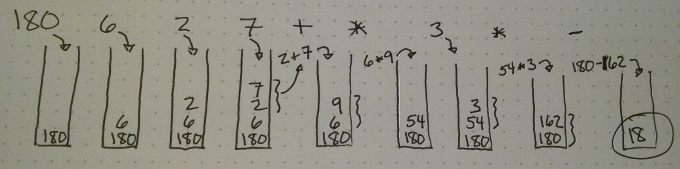 180 6 2 7 + * 3 * -
2+7 6*9 54*3 180-162
7
2 2 9 3
6 6 6 6 54 54 162
180 180 180 180 180 180 180 180 18